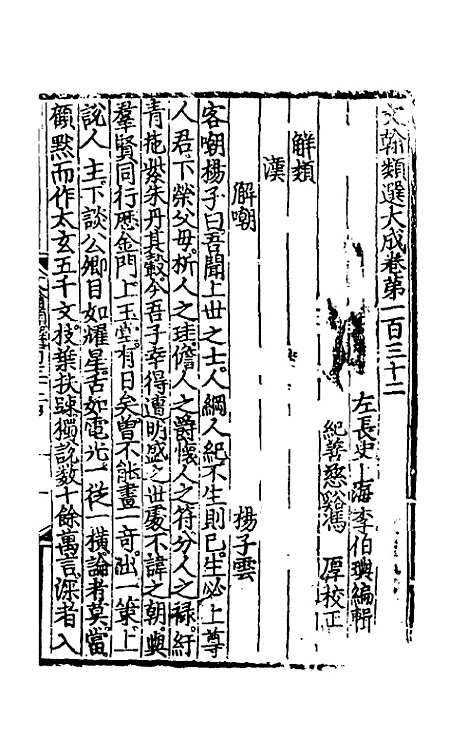 文翰類選大成卷第一百三十二
左長史上海李伯璵編輯
紀善慈谿馮厚校正
解類
漢
解嘲 揚子雲
客嘲揚子曰吾聞上世之士人綱人紀不生則已生必上尊
人君下榮父母析人之珪儋人之爵懷人之符分人之祿紆
青拖紫朱丹其轂今吾子幸得遭明盛之世處不諱之朝與
羣賢同行歷金門上玉堂有日矣曾不能畫一奇出一策上
說人主下談公卿目如耀星舌如電光一從一橫論者莫當
顧默而作太玄五千文技葉扶踈獨說数十餘萬言深者入